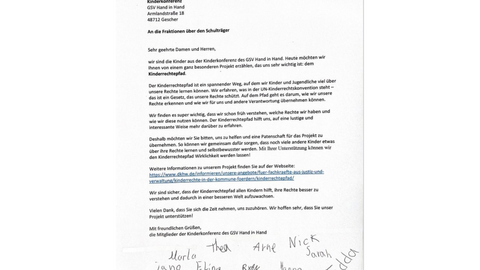 Kinderkonferenz
GSV Hand in Hand
Armlandstraße 18
48712 Gescher
An die Fraktionen über den Schulträger
Sehr geehrte Damen und Herren,
wir sind die Kinder aus der Kinderkonferenz des GSV Hand in Hand. Heute möchten wir
Ihnen von einem ganz besonderen Projekt erzählen, das uns sehr wichtig ist: dem
Kinderrechtepfad.
Der Kinderrechtepfad ist ein spannender Weg, auf dem wir Kinder und Jugendliche viel über
unsere Rechte lernen können. Wir erfahren, was in der UN-Kinderrechtskonvention steht –
das ist ein Gesetz, das unsere Rechte schützt. Auf dem Pfad geht es darum, wie wir unsere
Rechte erkennen und wie wir für uns und andere Verantwortung übernehmen können.
Wir finden es super wichtig, dass wir schon früh verstehen, welche Rechte wir haben und
wie wir diese nutzen können. Der Kinderrechtepfad hilft uns, auf eine lustige und
interessante Weise mehr darüber zu erfahren.
Deshalb möchten wir Sie bitten, uns zu helfen und eine Patenschaft für das Projekt zu
übernehmen. So können wir gemeinsam dafür sorgen, dass noch viele andere Kinder etwas
über ihre Rechte lernen und selbstbewusster werden. Mit Ihrer Unterstützung können wir
den Kinderrechtepfad Wirklichkeit werden lassen!
Weitere Informationen zu unserem Projekt finden Sie auf der Webseite:
https://www.dkhw.de/informieren/unsere-angebote/fuer-fachkraefte-aus-justiz-und-
verwaltung/kinderrechte-in-der-kommune-foerdern/kinderrechtepfad/
Wir sind sicher, dass der Kinderrechtepfad allen Kindern hilft, ihre Rechte besser zu
verstehen und dadurch in einer besseren Welt aufzuwachsen.
Vielen Dank, dass Sie sich die Zeit nehmen, uns zuzuhören. Wir hoffen sehr, dass Sie unser
Projekt unterstützen!
Mit freundlichen Grüßen,
die Mitglieder der Kinderkonferenz des GSV Hand in Hand
Marla Thea Arne Nick
Sarah